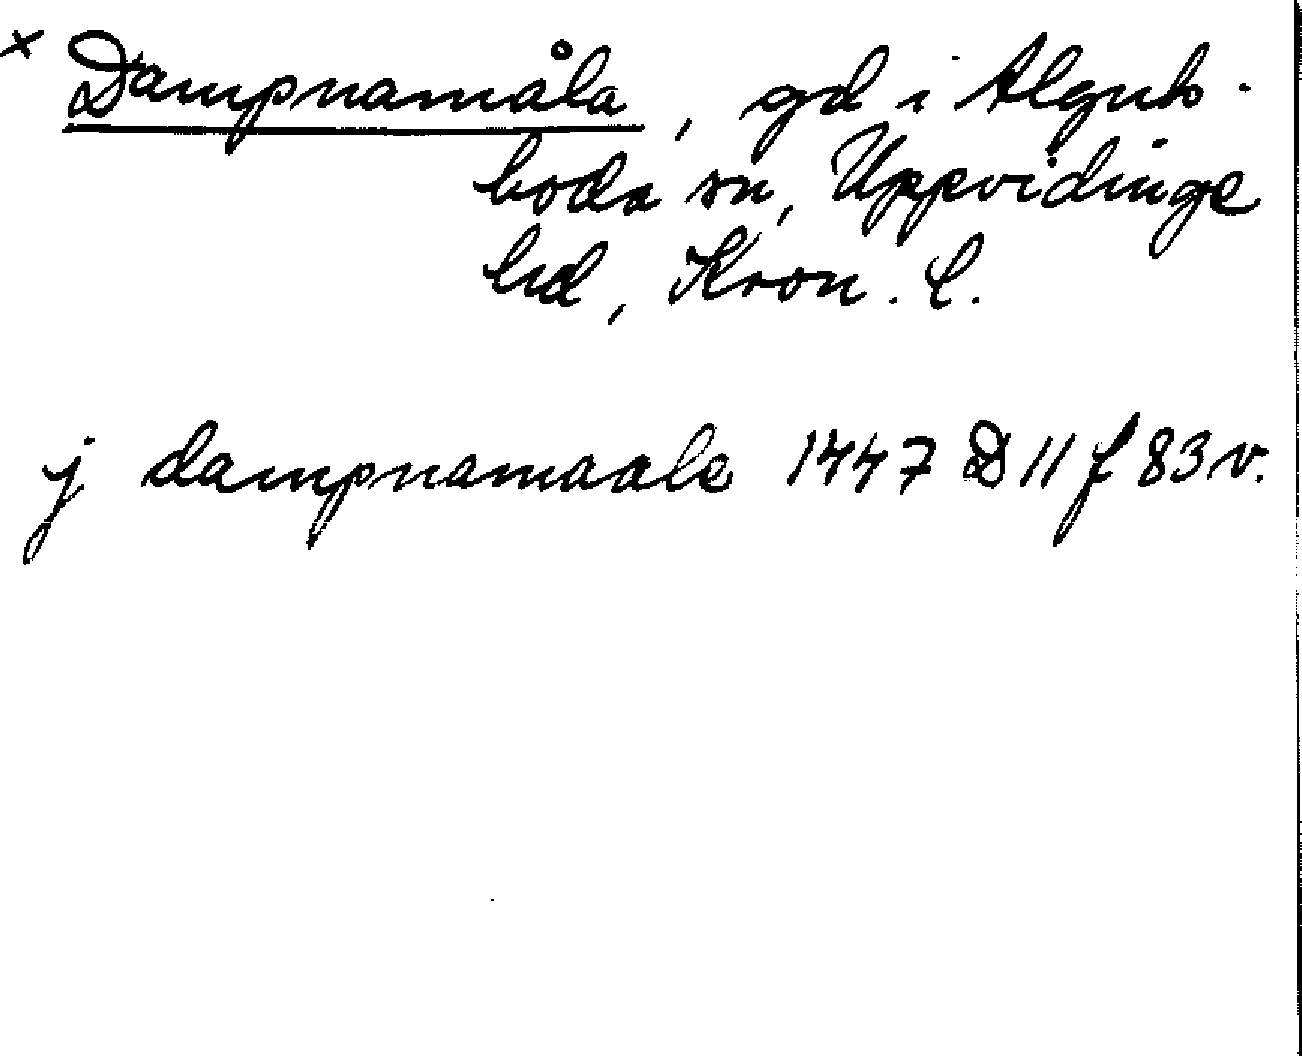 x Dampnamåla, gd i Alguts-
boda sn, Uppvidinge
hd, Kron. l.
j dampnamaale 1447 D 11 f 83 v.